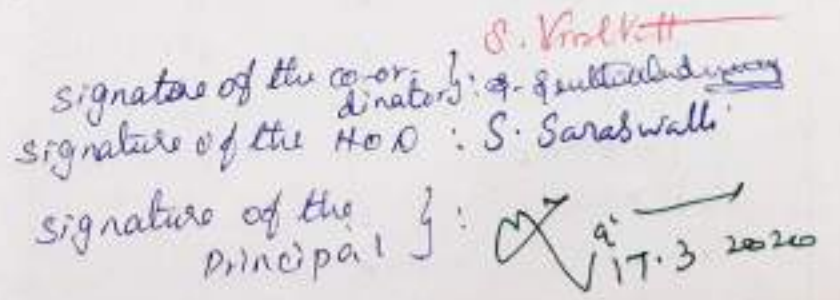 signature of the co-or-
dinator } :
signature of the HOD : S. Saraswathi
signature of the
Principal } :
17.3 2020